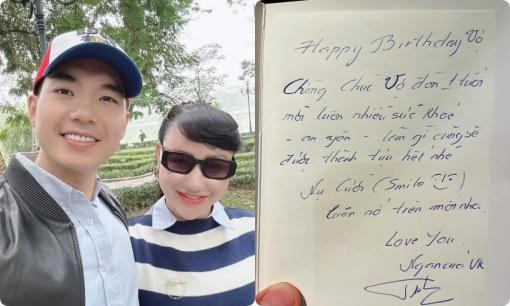 Happy Birthday Vợ
Chồng Chúc Vợ đón 1 tuổi
mới luôn nhiều sức khoẻ
- an yên - làm gì cũng sẽ
được thành tựu hết nhé
Nụ Cười (Smile
luôn nở trên môi nha.
Love You
Ngancuá Vk